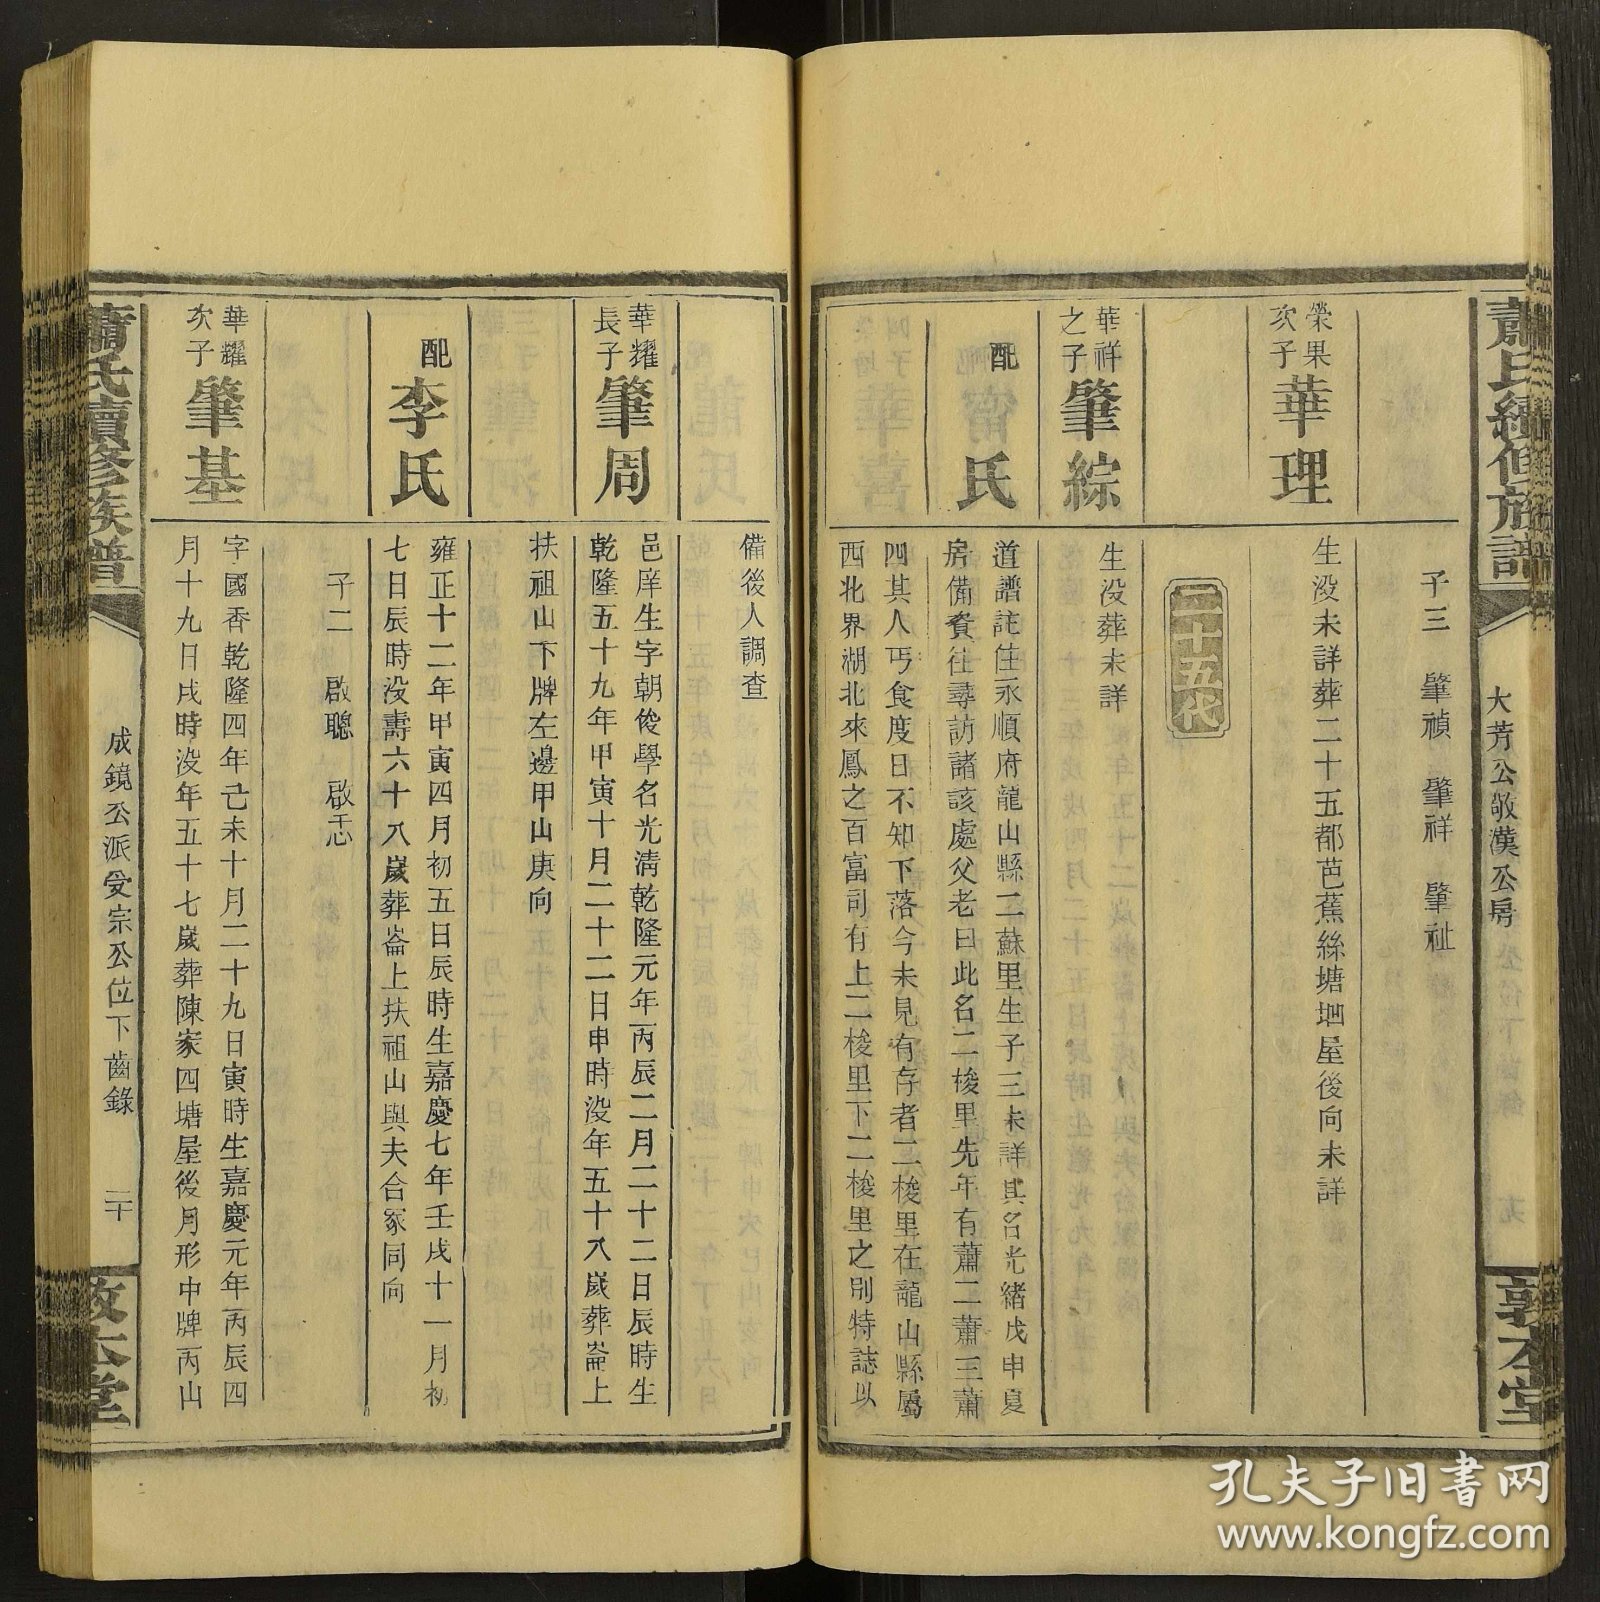 蕭氏續修族譜
大芳公敬漢公房
敦本堂
子三 肇禎 肇祥 肇祉
榮果
次子
華理
生没未詳葬二十五都芭蕉絲塘堋屋後向未詳
二十五代
華祥
之子
肇綜
生没葬未詳
配
氏
道譜註住永順府龍山縣二蘇里生子三未詳其名光緒戊申夏
房備資往尋訪諸該處父老曰此名二梭里先年有蕭二蕭三蕭
四其人丐食度日不知下落今未見有存者二梭里在龍山縣屬
西北界湖北來鳳之百富司有上二梭里下二梭里之別特誌以
備後人調查
華耀
長子
肇周
邑庠生字朝俊學名光清乾隆元年丙辰二月二十二日辰時生
乾隆五十九年甲寅十月二十二日申時没年五十八歲葬崙上
扶祖山下牌左邊甲山庚向
配
李氏
雍正十二年甲寅四月初五日辰時生嘉慶七年壬戌十一月初
七日辰時没壽六十八歲葬崙上扶祖山與夫合冢同向
子二 啟聰 啟志
華耀
次子
肇基
字國香乾隆四年己未十月二十九日寅時生嘉慶元年丙辰四
月十九日戌時没年五十七歲葬陳家四塘屋後月形中牌丙山
蕭氏續修族譜
成鏡公派受宗公位下齒錄
二十
敦本堂
孔夫子旧书网
www.kongfz.com